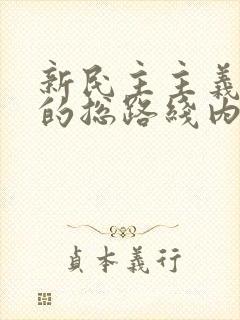 新民主主義
的總路綫内
貞本義行